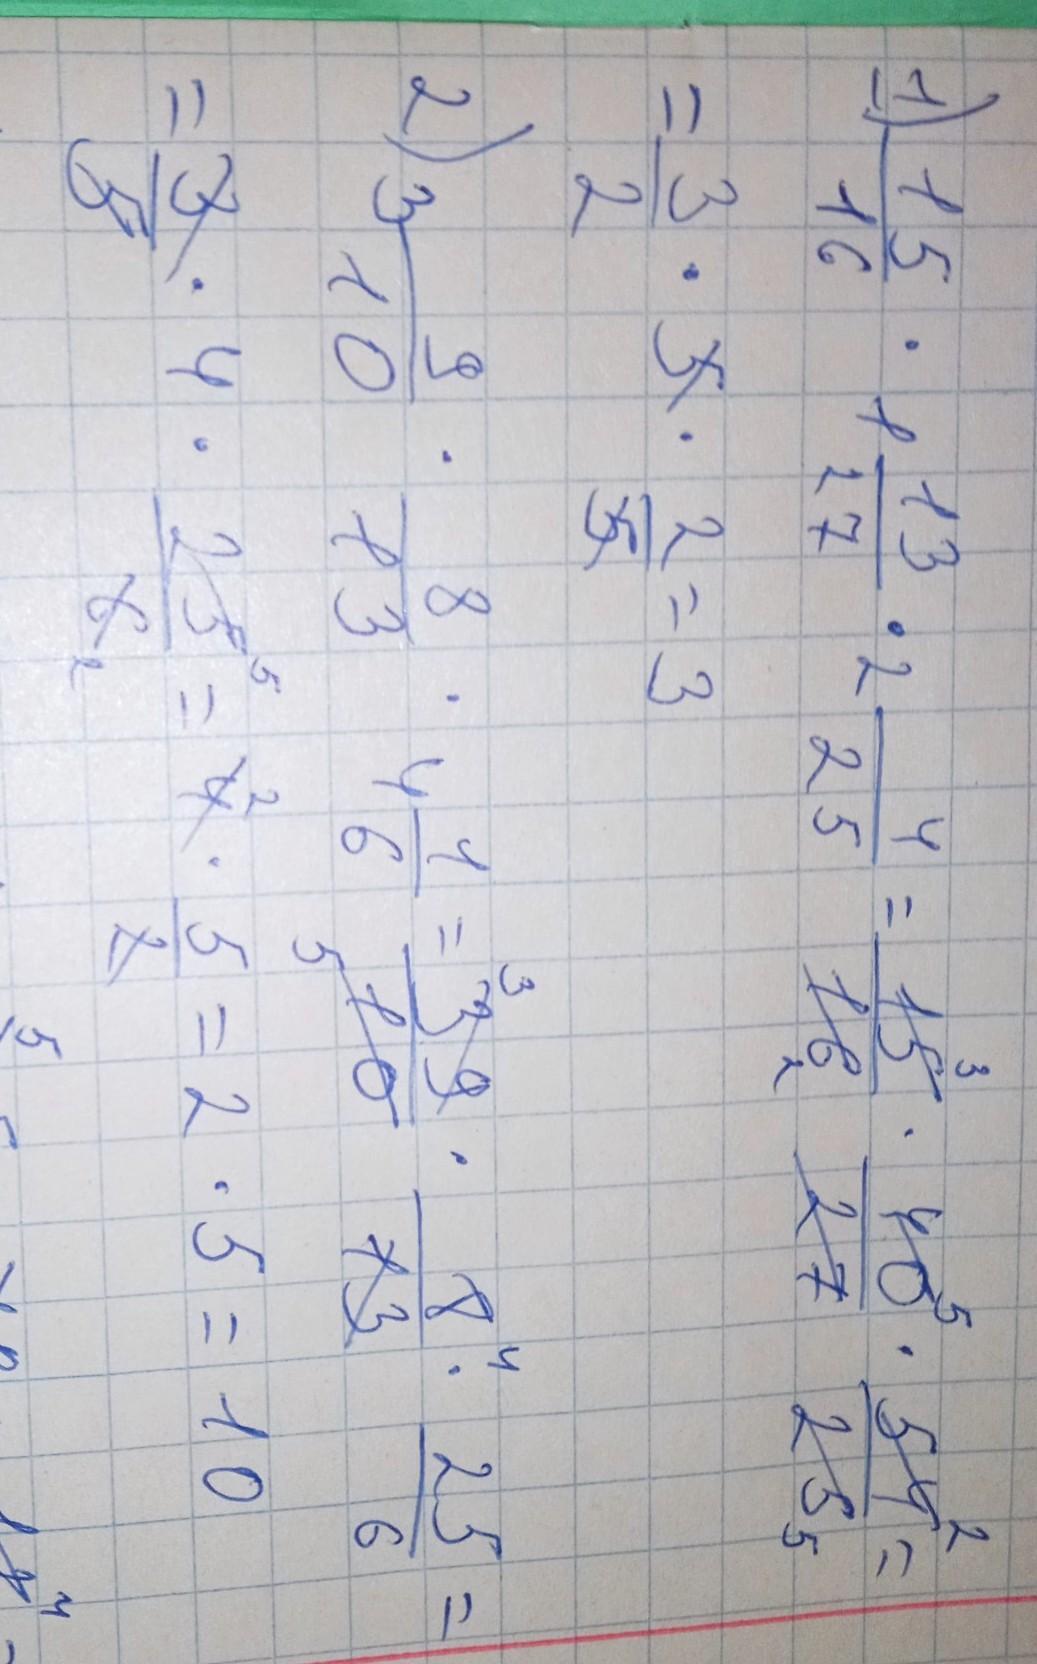 1) 15/16 · 1 13/27 · 2 4/25 = 15³/16₂ · 40⁵/27 · 54²/25₅ =
= 3/2 · 5 · 2/5 = 3
2) 3 9/10 · 8/13 · 4 1/6 = 39³/10₅ · 8⁴/13 · 25/6 =
= 3/5 · 4 · 25⁵/6₂ = 4² · 5/2 = 2 · 5 = 10